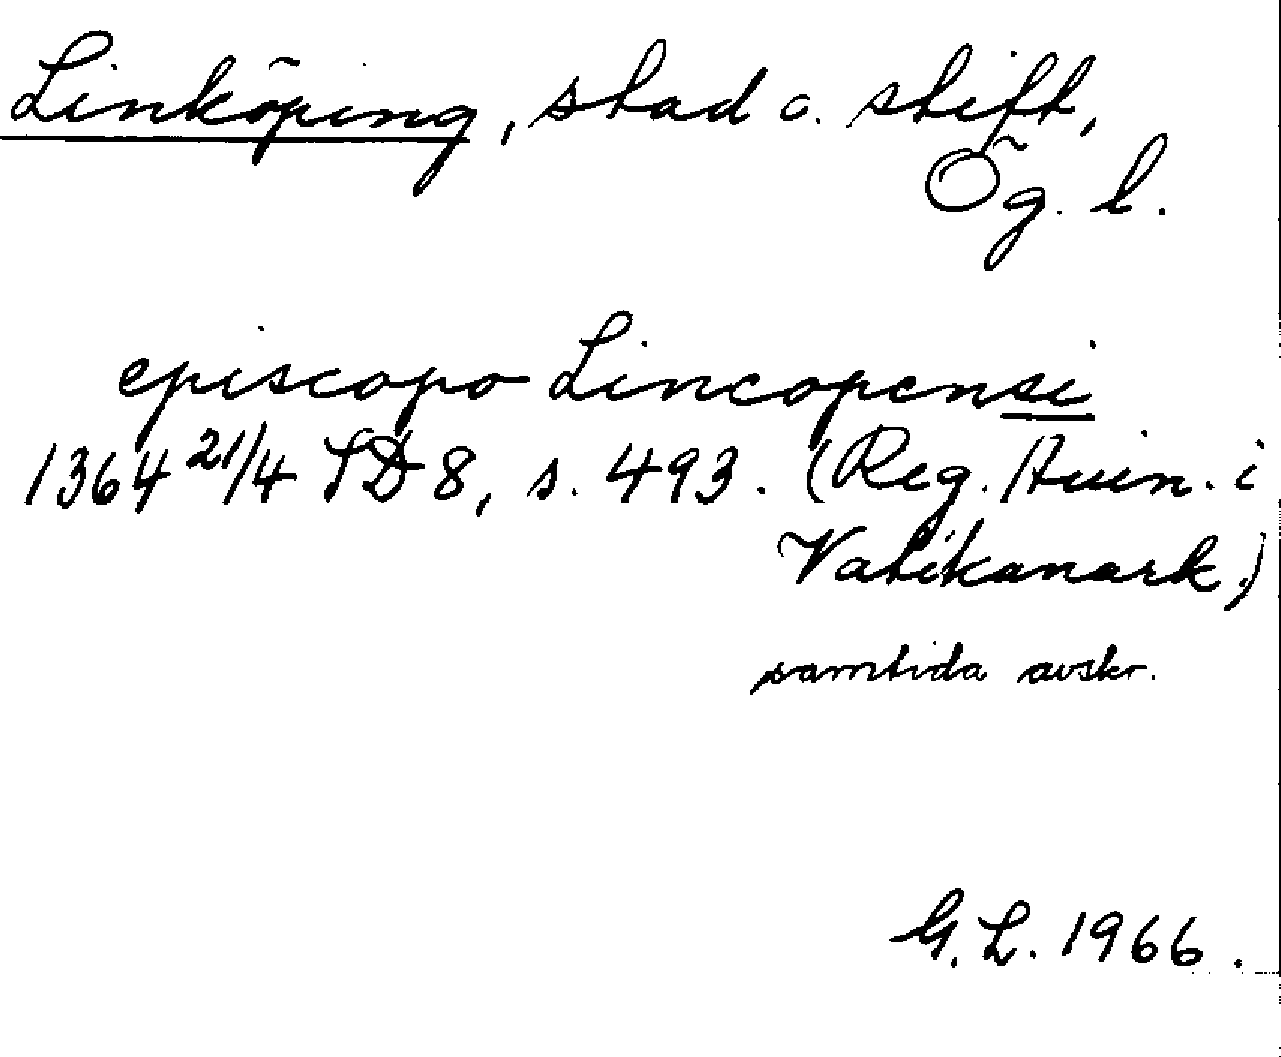 Linköping, stad o. stift,
Ög. l.
episcopo Lincopensi
1364 21/4 SD 8, s. 493. (Reg. Avin. i
Vatikanark.)
samtida avskr.
G. L. 1966.